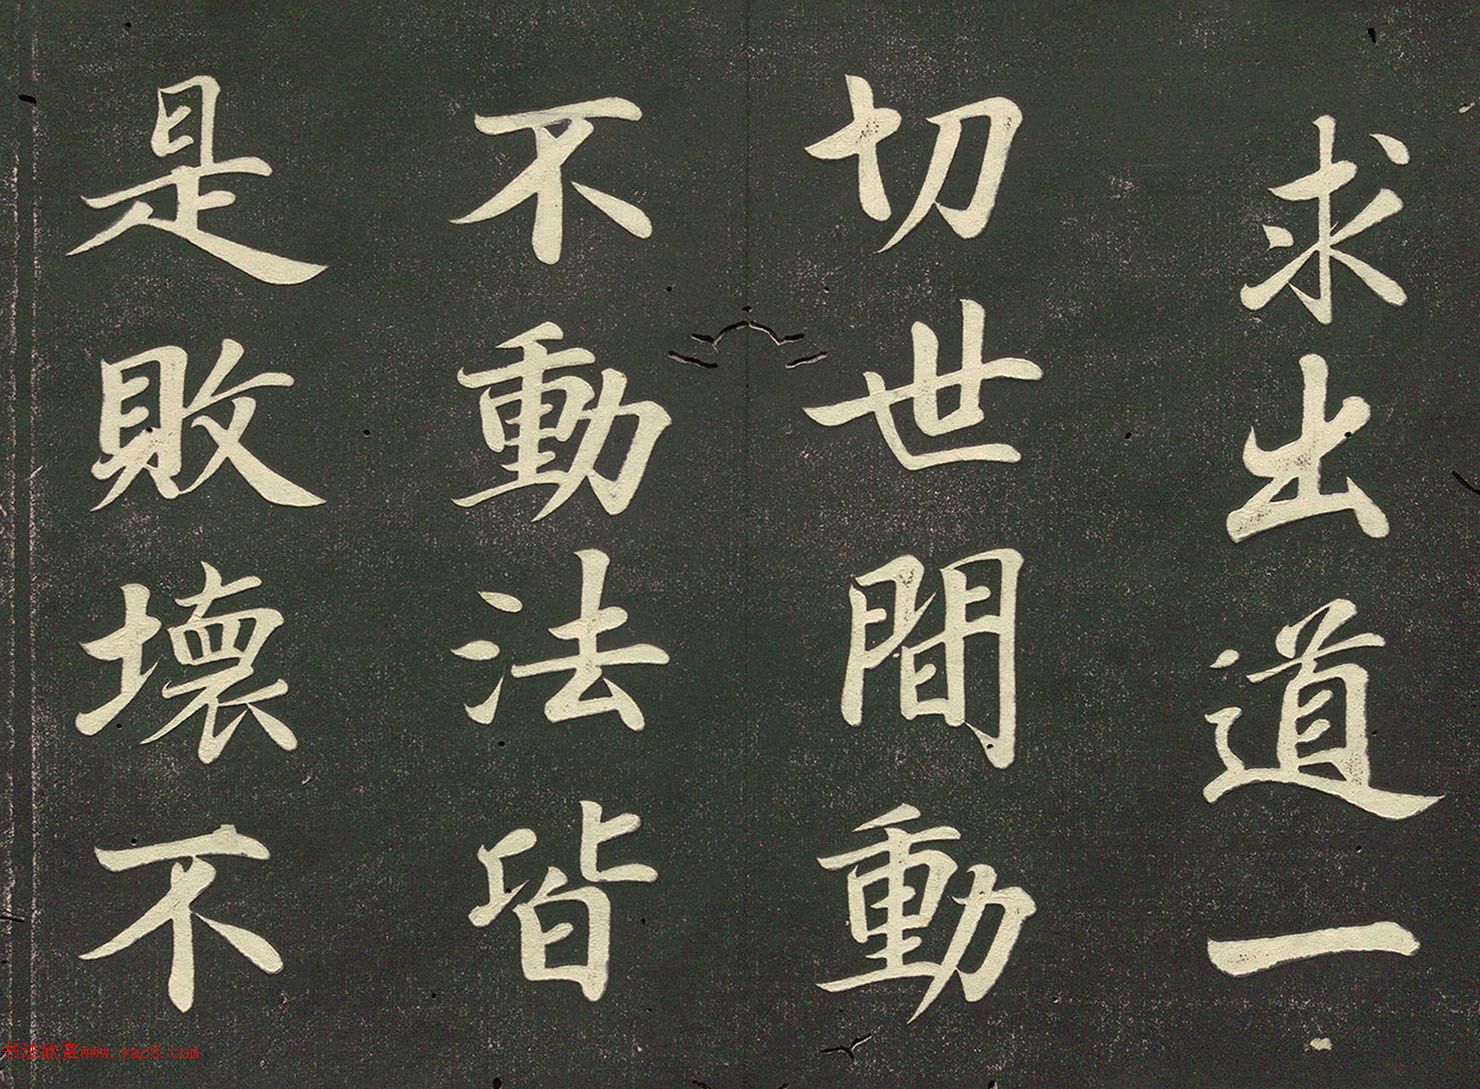 求出道一
切世間動
不動法皆
是敗壞不
书法欣赏www.yac8.com